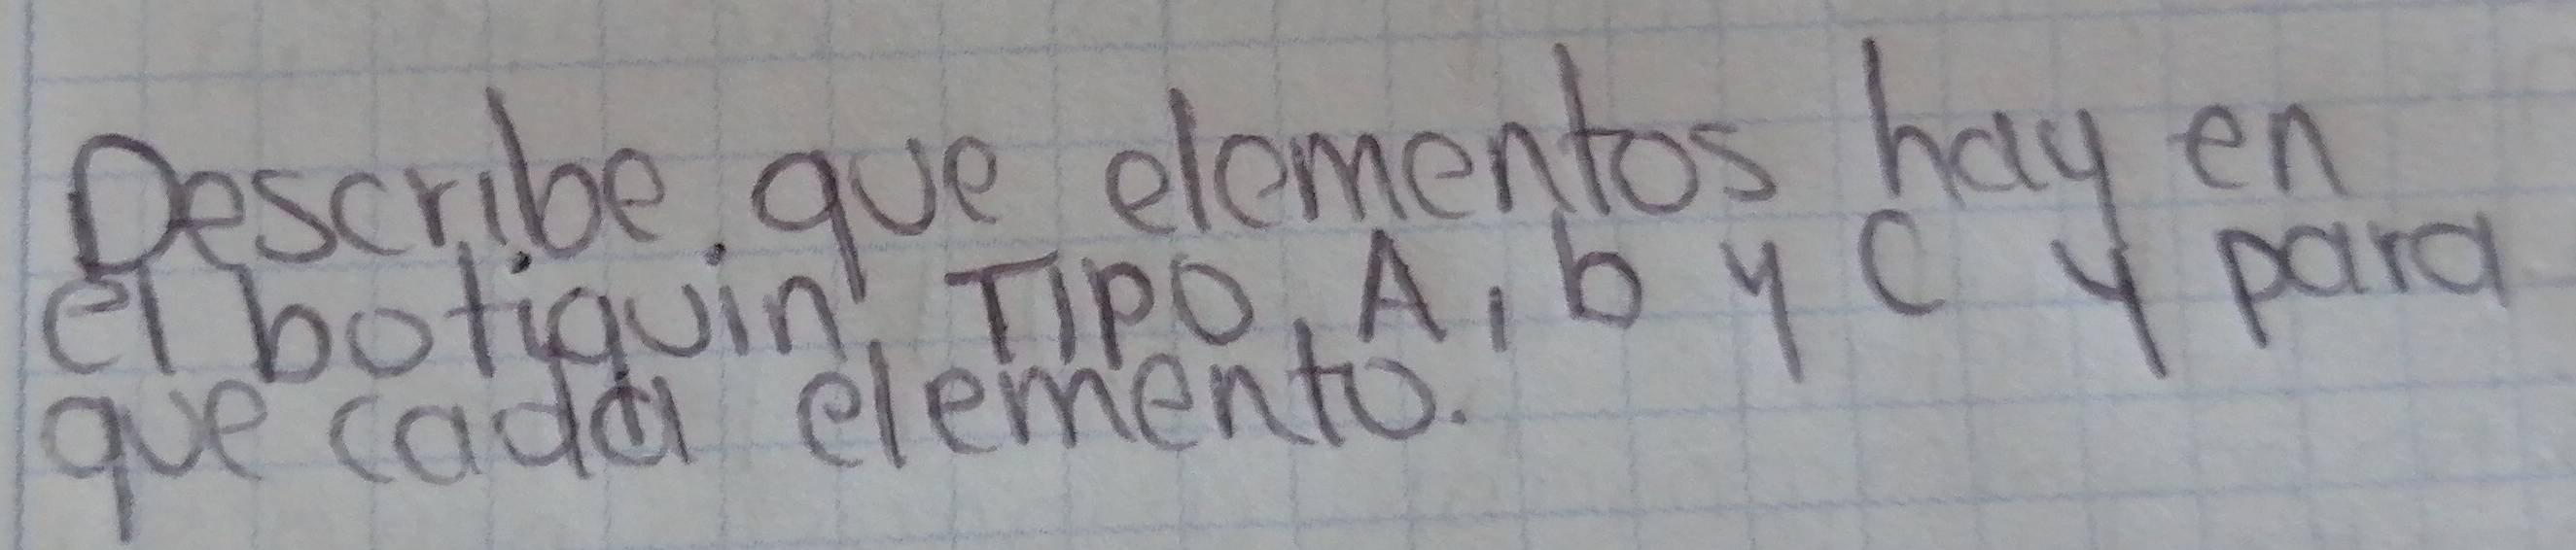 Describe que elementos hay en
el botiquin TIPO, A, b y C y para
que cada elemento.